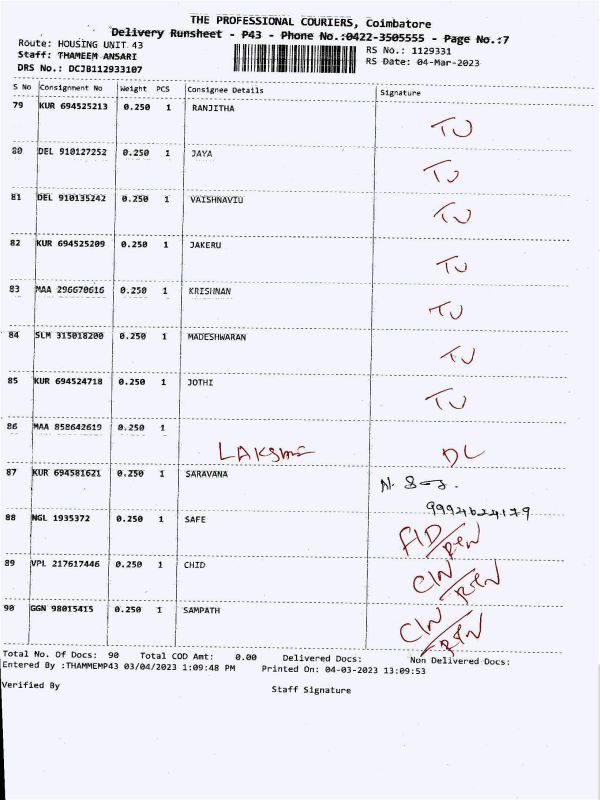 THE PROFESSIONAL COURIERS, Coimbatore
Delivery Runsheet - P43 - Phone No.:0422-3505555 - Page No.:7
Route: HOUSING UNIT 43
Staff: THAMEEM ANSARI
DRS No.: DCJB112933107
RS No.: 1129331
RS Date: 04-Mar-2023
S No Consignment No Weight PCS Consignee Details Signature
79 KUR 694525213 0.250 1 RANJITHA TJ
80 DEL 910127252 0.250 1 JAYA TJ
81 DEL 910135242 0.250 1 VAISHNAVIU TJ
82 KUR 694525209 0.250 1 JAKERU TJ
83 MAA 296670616 0.250 1 KRISHNAN TJ
84 SLM 315018200 0.250 1 MADESHWARAN TJ
85 KUR 694524718 0.250 1 JOTHI TJ
86 MAA 858642619 0.250 1 LAKSHMI DL
87 KUR 694581621 0.250 1 SARAVANA
9994624179
88 NGL 1935372 0.250 1 SAFE
89 VPL 217617446 0.250 1 CHID
90 GGN 98015415 0.250 1 SAMPATH
Total No. Of Docs: 90 Total COD Amt: 0.00 Delivered Docs: Non Delivered Docs:
Entered By :THAMMEMP43 03/04/2023 1:09:48 PM Printed On: 04-03-2023 13:09:53
Verified By Staff Signature